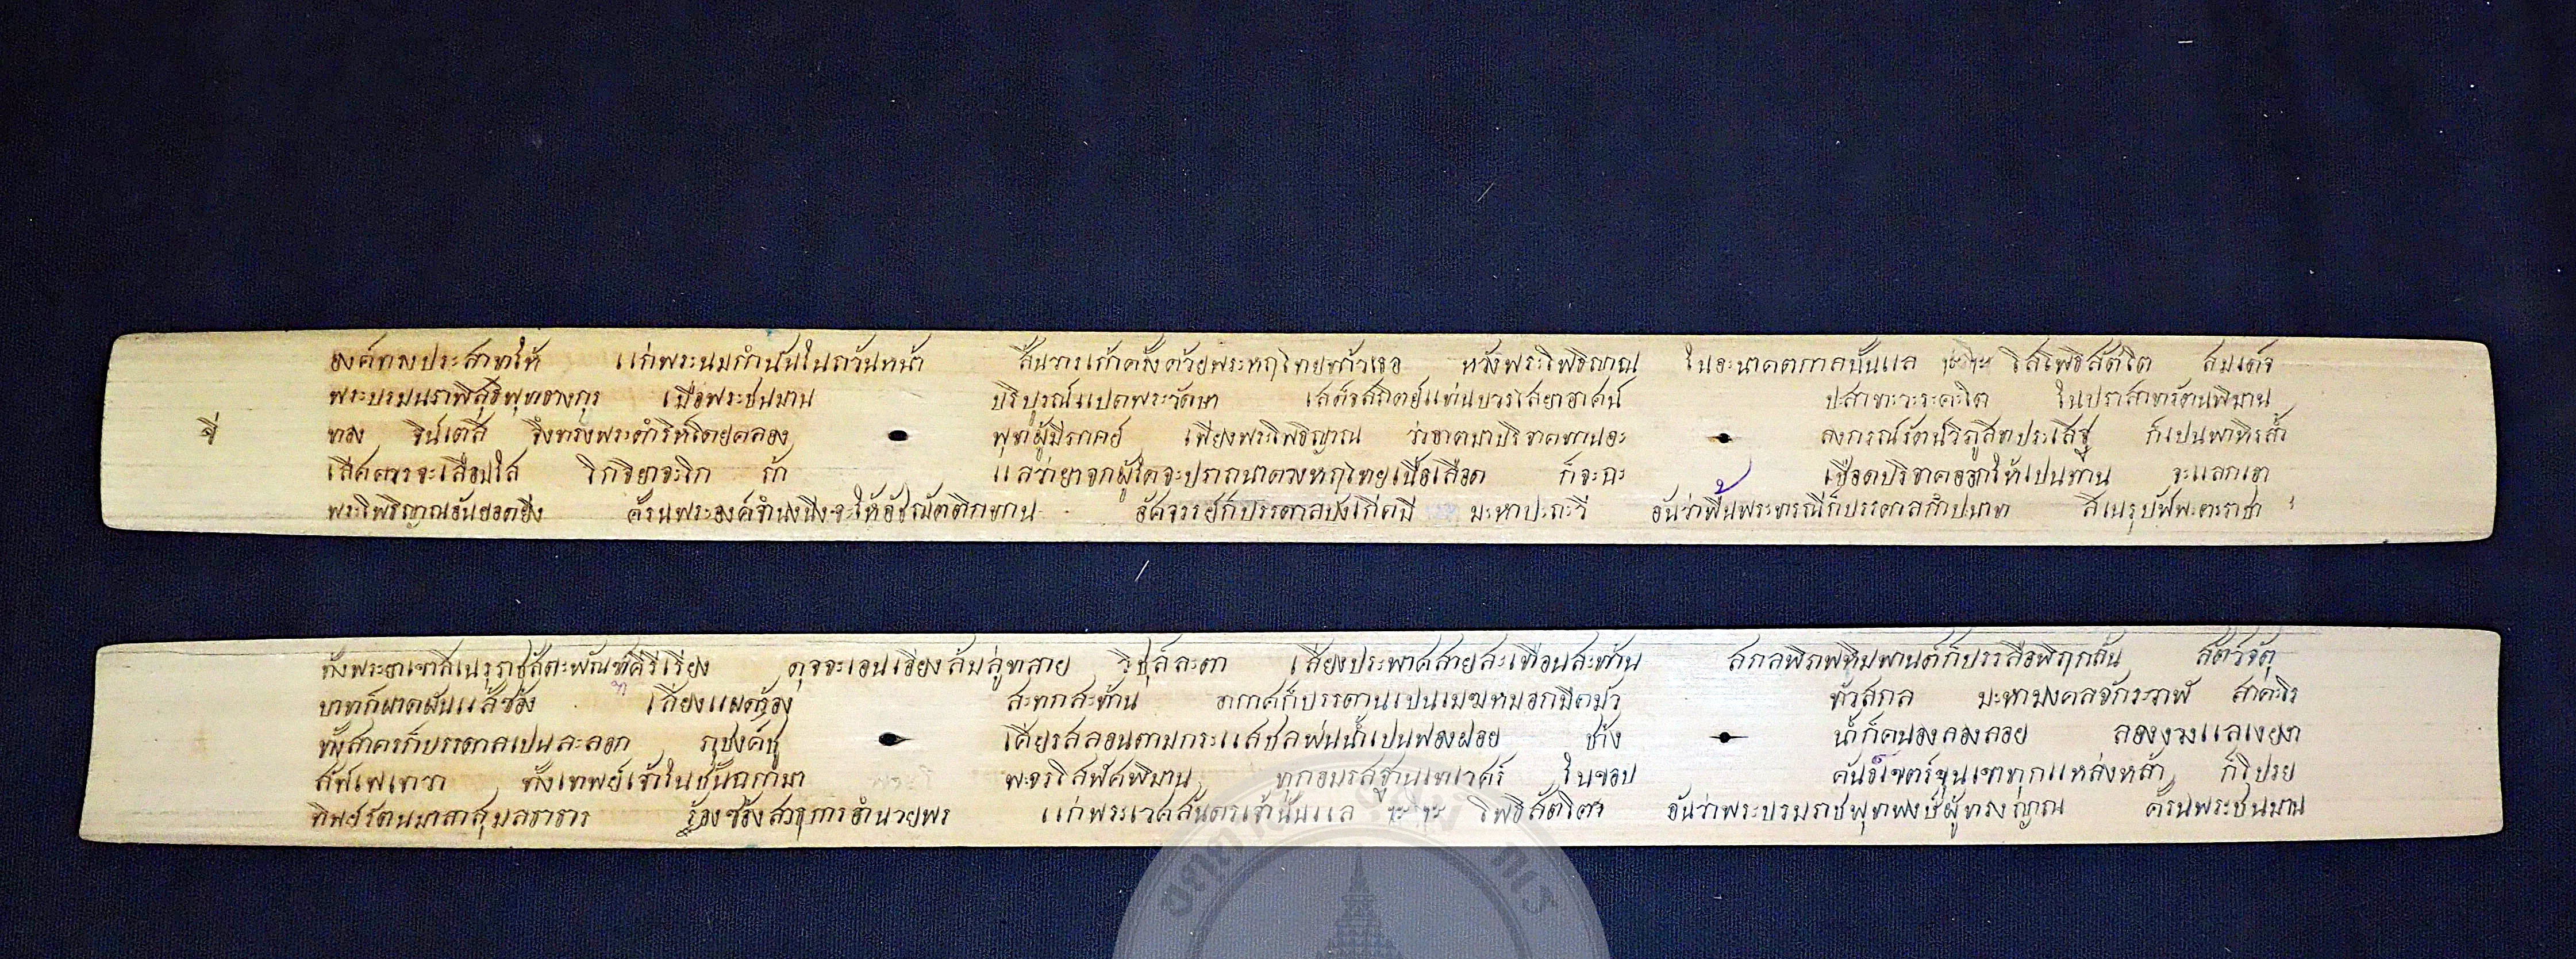 องค์ทรงประสาทให้ แก่พระนมกำนันในถวันหน้า สิ้นวารเก้าครั้งด้วยพระหฤไทยท้าวเธอ หวังพระโพธิญาณ ในอะนาคตกาลนั้นแล ฯะ๛ะ โสโพธิสัตโต สมเด็จ
พระบรมนราพิสุธิพุทธางกูร เมื่อพระชนมาน บริบูรณ์แปดพระวัสษา เสด็จสถิตย์แท่นบวรไสยาอาศน์ ปสาทะวะระคะโต ในปราสาทรัตนพิมาน
จี่ ทอง จินเตสิ จึงทรงพระดำริห์โดยคลอง พุทผู้มีรกคย์ เพียงพระโพธิญาณ ว่าอาตมาบริจาคทานอะ ลงกรณ์รัตน์วิภูสิทประเสฐ ก็เปนพาหิรส่ำ
เสิศควรจะเลือมใส โกจิยาจะโก ถ้า แลว่ายาจกผู้ใดจะปรถนาดวงหฤไทยเนื้อเลือด ก็จะฉะ เชือดบริจาคออกให้เปนทาน จะแลกเอา
พระโพธิญาณอันยอดยิ่ง ครั้นพระองค์จำนงนึงจะให้อัชฌัตติกทาน อัศจรรย์ก็บรรดาลบังเกิดมี มะหาปะถะวี อันว่าพื้นพระทรณีก็บรรดาลกำปนาท สิเนรุปัพพะตะราชา
ทั้งพระยาเขาสิเนรุราชสัตะพัณฑ์คีรีเรียง ดุจจะเอนเอียงล้มลู่ทลาย วิชุล์ละตา เสียงประพาศสายสะเทือนสะท้าน สกลพิภพหิมพานต์ก็บรรลือพฤกลั่น สัตวจัตุ
บาทก็ผาดผันแส้ซ้อง เสียงแผดร้อง สะทกสะท้าน อากาศก็บรรดานเปนเมฆหมอกมืดมัว ทั่วสกล มะหามงคลจักระวาฬ สาคะโร
ทั้งสาครก็บรรดาลเปนละลอก ภุชงค์ชู เศียรสลอนตามกระแสชลพ่นน้ำเปนฟองฝอย ช้าง น้ำก็คนองลองลอย ลองงวงแลเงยงา
สัพเพเทวา ทั้งเทพย์เจ้าในชั้นฉกามา พะจรโสฬศพิมาน ทุกอมรสฐานเทเวศร์ ในขอบ คันธ์เขตร์ขุนเขาทุกแหล่งหล้า ก็โปรย
ทิพย์รัตนมาลาสุมลธาธาร ร้องซร้องสาธุการอำนวยพร แก่พระเวศสันดรเจ้านั้นแล ฯะ๛ะ โพธิสัตโต อันว่าพระบรมราชพุทพงษ์ผู้ทรงญาณ ครั้นพระชนมาน